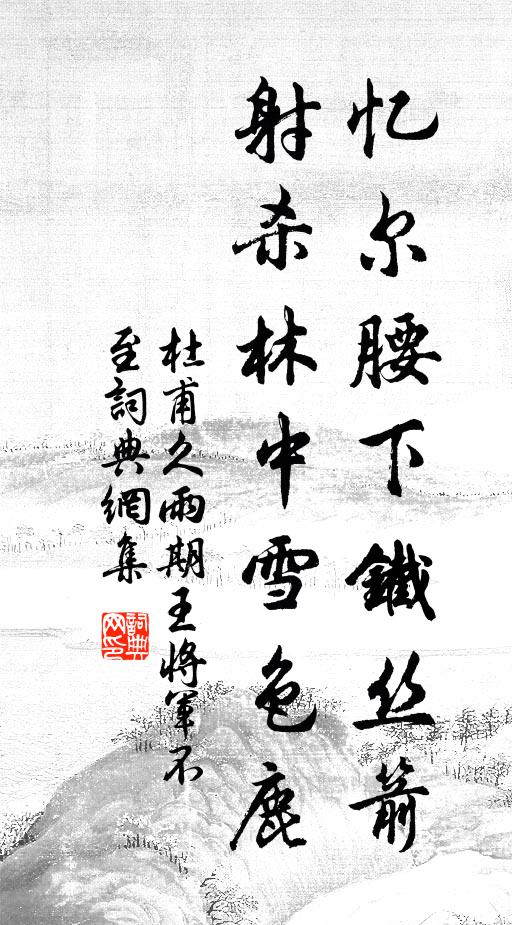 忆尔腰下鐵丝箭
射杀林中雪色鹿
杜甫久雨期王将軍不
至詞典網集
詞典
网印